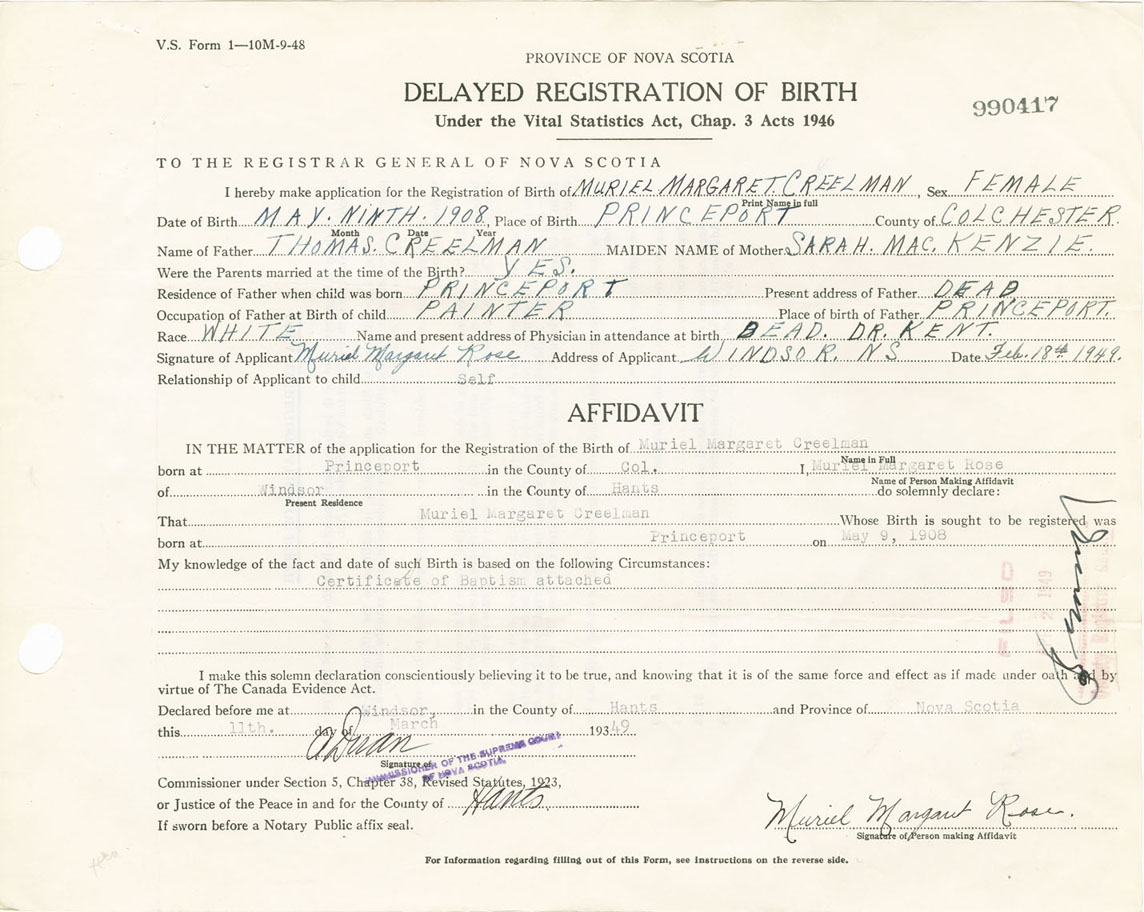 V.S. Form 1—10M-9-48
PROVINCE OF NOVA SCOTIA
DELAYED REGISTRATION OF BIRTH
990417
Under the Vital Statistics Act, Chap. 3 Acts 1946
TO THE REGISTRAR GENERAL OF NOVA SCOTIA
I hereby make application for the Registration of Birth of MURIEL MARGARET CREELMAN, Sex FEMALE
Print Name in full
Date of Birth MAY. NINTH. 1908 Place of Birth PRINCEPORT County of COLCHESTER.
Month Date Year
Name of Father THOMAS. CREELMAN MAIDEN NAME of Mother SARAH. MAC. KENZIE.
Were the Parents married at the time of the Birth? YES.
Residence of Father when child was born PRINCEPORT Present address of Father DEAD
Occupation of Father at Birth of child PAINTER Place of birth of Father PRINCEPORT.
Race WHITE Name and present address of Physician in attendance at birth DEAD. DR. KENT.
Signature of Applicant Muriel Margaret Rose Address of Applicant WINDSOR. NS Date Feb. 18th 1949.
Relationship of Applicant to child Self
AFFIDAVIT
IN THE MATTER of the application for the Registration of the Birth of Muriel Margaret Creelman
Name in Full
born at Princeport in the County of Col. I, Muriel Margaret Rose
Name of Person Making Affidavit
of Windsor in the County of Hants do solemnly declare:
Present Residence
That Muriel Margaret Creelman Whose Birth is sought to be registered was
born at Princeport on May 9, 1908
My knowledge of the fact and date of such Birth is based on the following Circumstances:
Certificate of Baptism attached
FILED
2 1949
I make this solemn declaration conscientiously believing it to be true, and knowing that it is of the same force and effect as if made under oath and by
virtue of The Canada Evidence Act.
Declared before me at Windsor, in the County of Hants and Province of Nova Scotia
this 11th. day of March 193 49
Signature of
COMMISSIONER OF THE SUPREME COURT
OF NOVA SCOTIA
Commissioner under Section 5, Chapter 38, Revised Statutes, 1923,
or Justice of the Peace in and for the County of Hants
If sworn before a Notary Public affix seal.
Muriel Margaret Rose.
Signature of Person making Affidavit
For Information regarding filling out of this Form, see instructions on the reverse side.